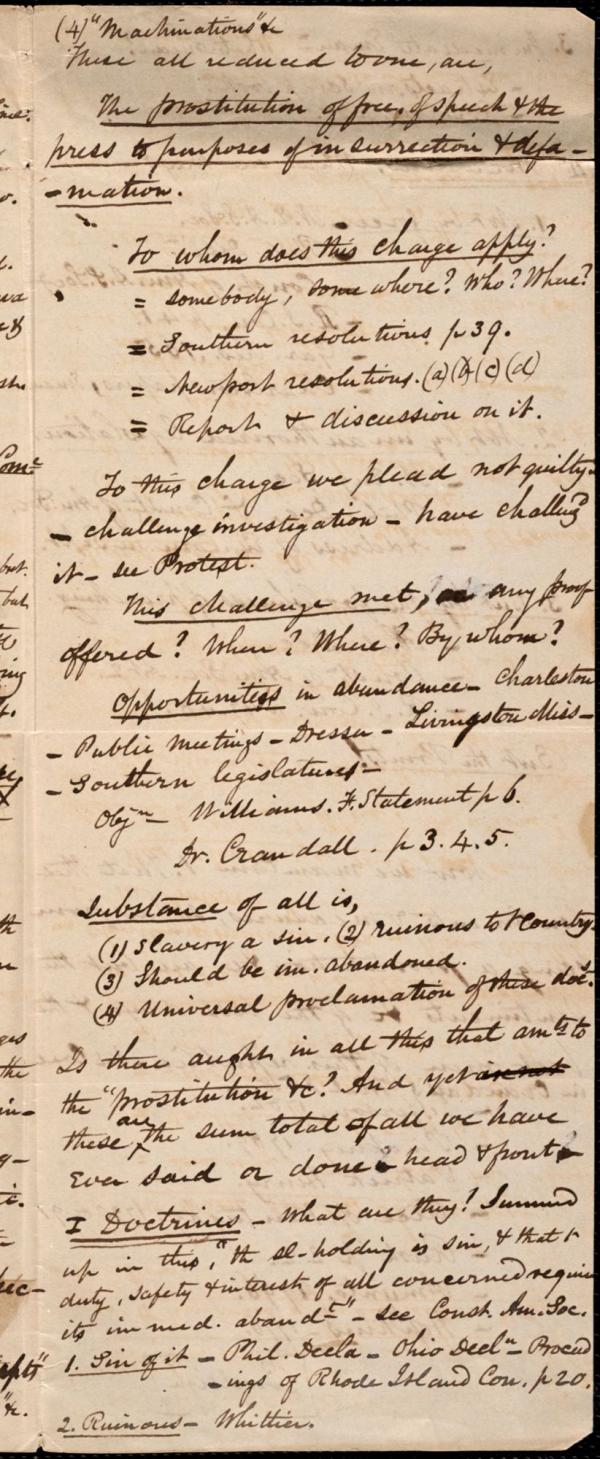 (4) "Machinations" &c
These all reduced to one, are,
The prostitution of free. of speech & the
press to purposes of insurrection & defa-
-mation.
To whom does this charge apply?
= somebody, some where? Who? Where?
= Southern resolutions p 39.
= Newport resolutions. (a) (b) (c) (d)
= Report & discussion on it.
To this charge we plead not guilty-
- challenge investigation - have challgd
it - see Protest.
This challenge met, any proof
offered? When? Where? By whom?
Opportunities in abundance - Charleston
- Public meetings - Dresser - Livingston Miss -
- Southern legislatures -
Objn - Williams. F. Statement p 6.
Dr. Crandall. p 3. 4. 5.
Substance of all is,
(1) Slavery a sin. (2) ruinous to t Country.
(3) Should be im. abandoned.
(4) Universal proclamation of these docs.
Is there aught in all this that amts to
the "prostitution &c? And yet are not
these are the sum total of all we have
ever said or done head & front
I Doctrines - What are they? Summed
up in this, "th sl-holding is sin, & that t
duty, safety & interest of all concerned require
its immed. abandt" - see Const. Am. Soc.
1. Sin of it - Phil. Decla - Ohio Decln - Proceed
-ings of Rhode Island Con. p 20.
2. Ruinous - Whittier.